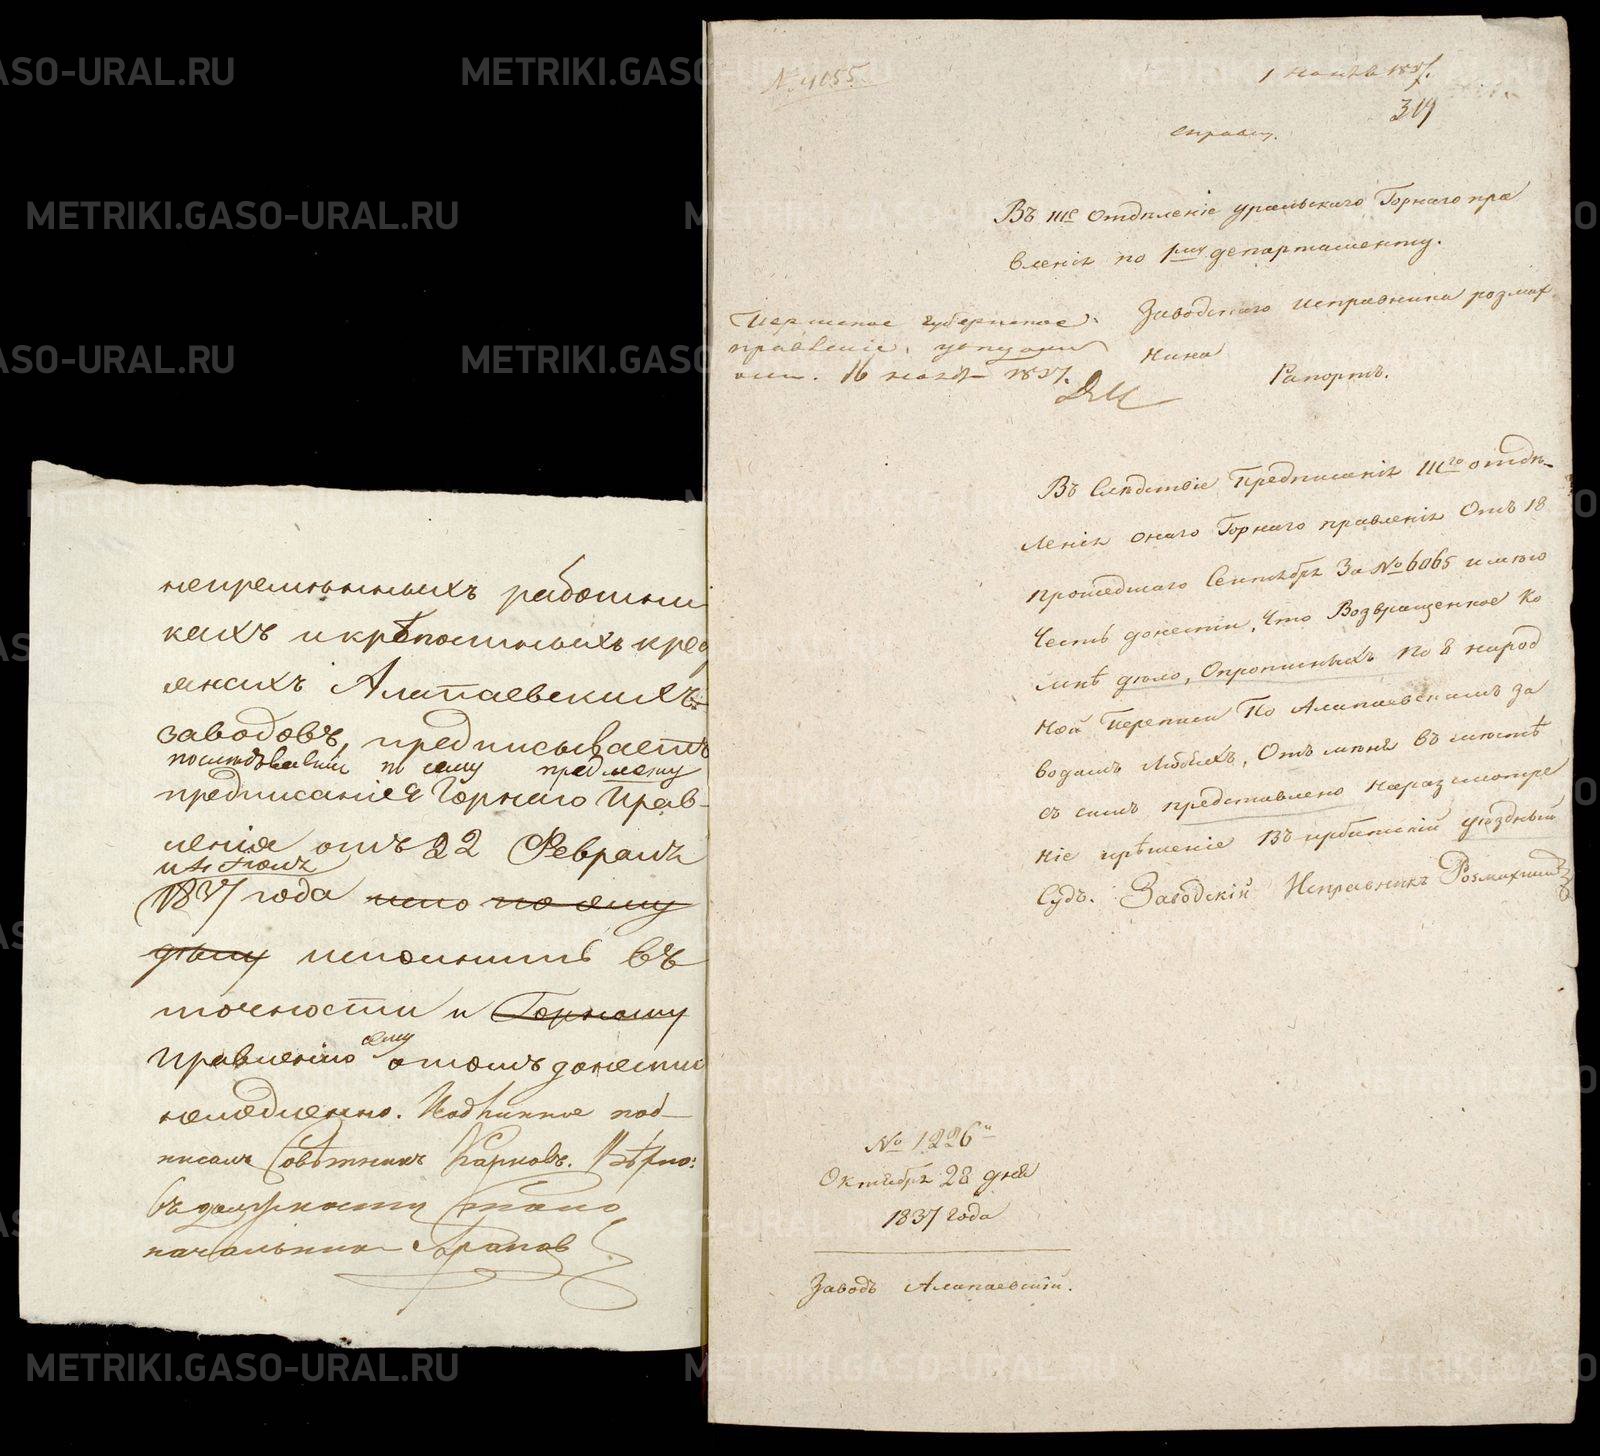 непремѣнныхъ работни
кахъ и крѣпостныхъ крес
янахъ Алапаевскихъ
заводовъ, предписываетъ
послѣдовавшія по сему предмету
предписанія Горнаго Прав-
ленія отъ 22 Февраля
1837 года по ему
дѣлу исполнить въ
точности и Горному
Правленію ему о томъ донести
немедленно. Подлинное под-
писалъ Совѣтникъ Карповъ. Вѣрно:
въ должности Столо
начальника
№ 4055
1 Нояб. 1837.
319
справку.
Въ III-е Отдѣленіе Уральскаго Горнаго пра
вленія по 1му департаменту.
Пермское Губернское
правленіе,
16 нояб. 1837.
Заводскаго Исправника Розмах
нина
Рапортъ.
Въ Слѣдствіе Предписанія IIIго отдѣ-
ленія онаго Горнаго правленія Отъ 18
прошедшаго Сентября За № 6065 имѣю
Честь донести, Что Возвращенное Ко
мнѣ дѣло, О прописныхъ По 8 народ
ной Переписи По Алапаевскимъ за
водамъ Людяхъ, Отъ меня въ мѣстѣ
съ симъ представлено На разсмотре
ніе и рѣшеніе Въ Ирбитскій уѣздный
Судъ. Заводскій Исправникъ Розмахнинъ
№ 1226й
Октября 28 дня
1837 года
Заводъ Алапаевскій.
METRIKI.GASO-URAL.RU